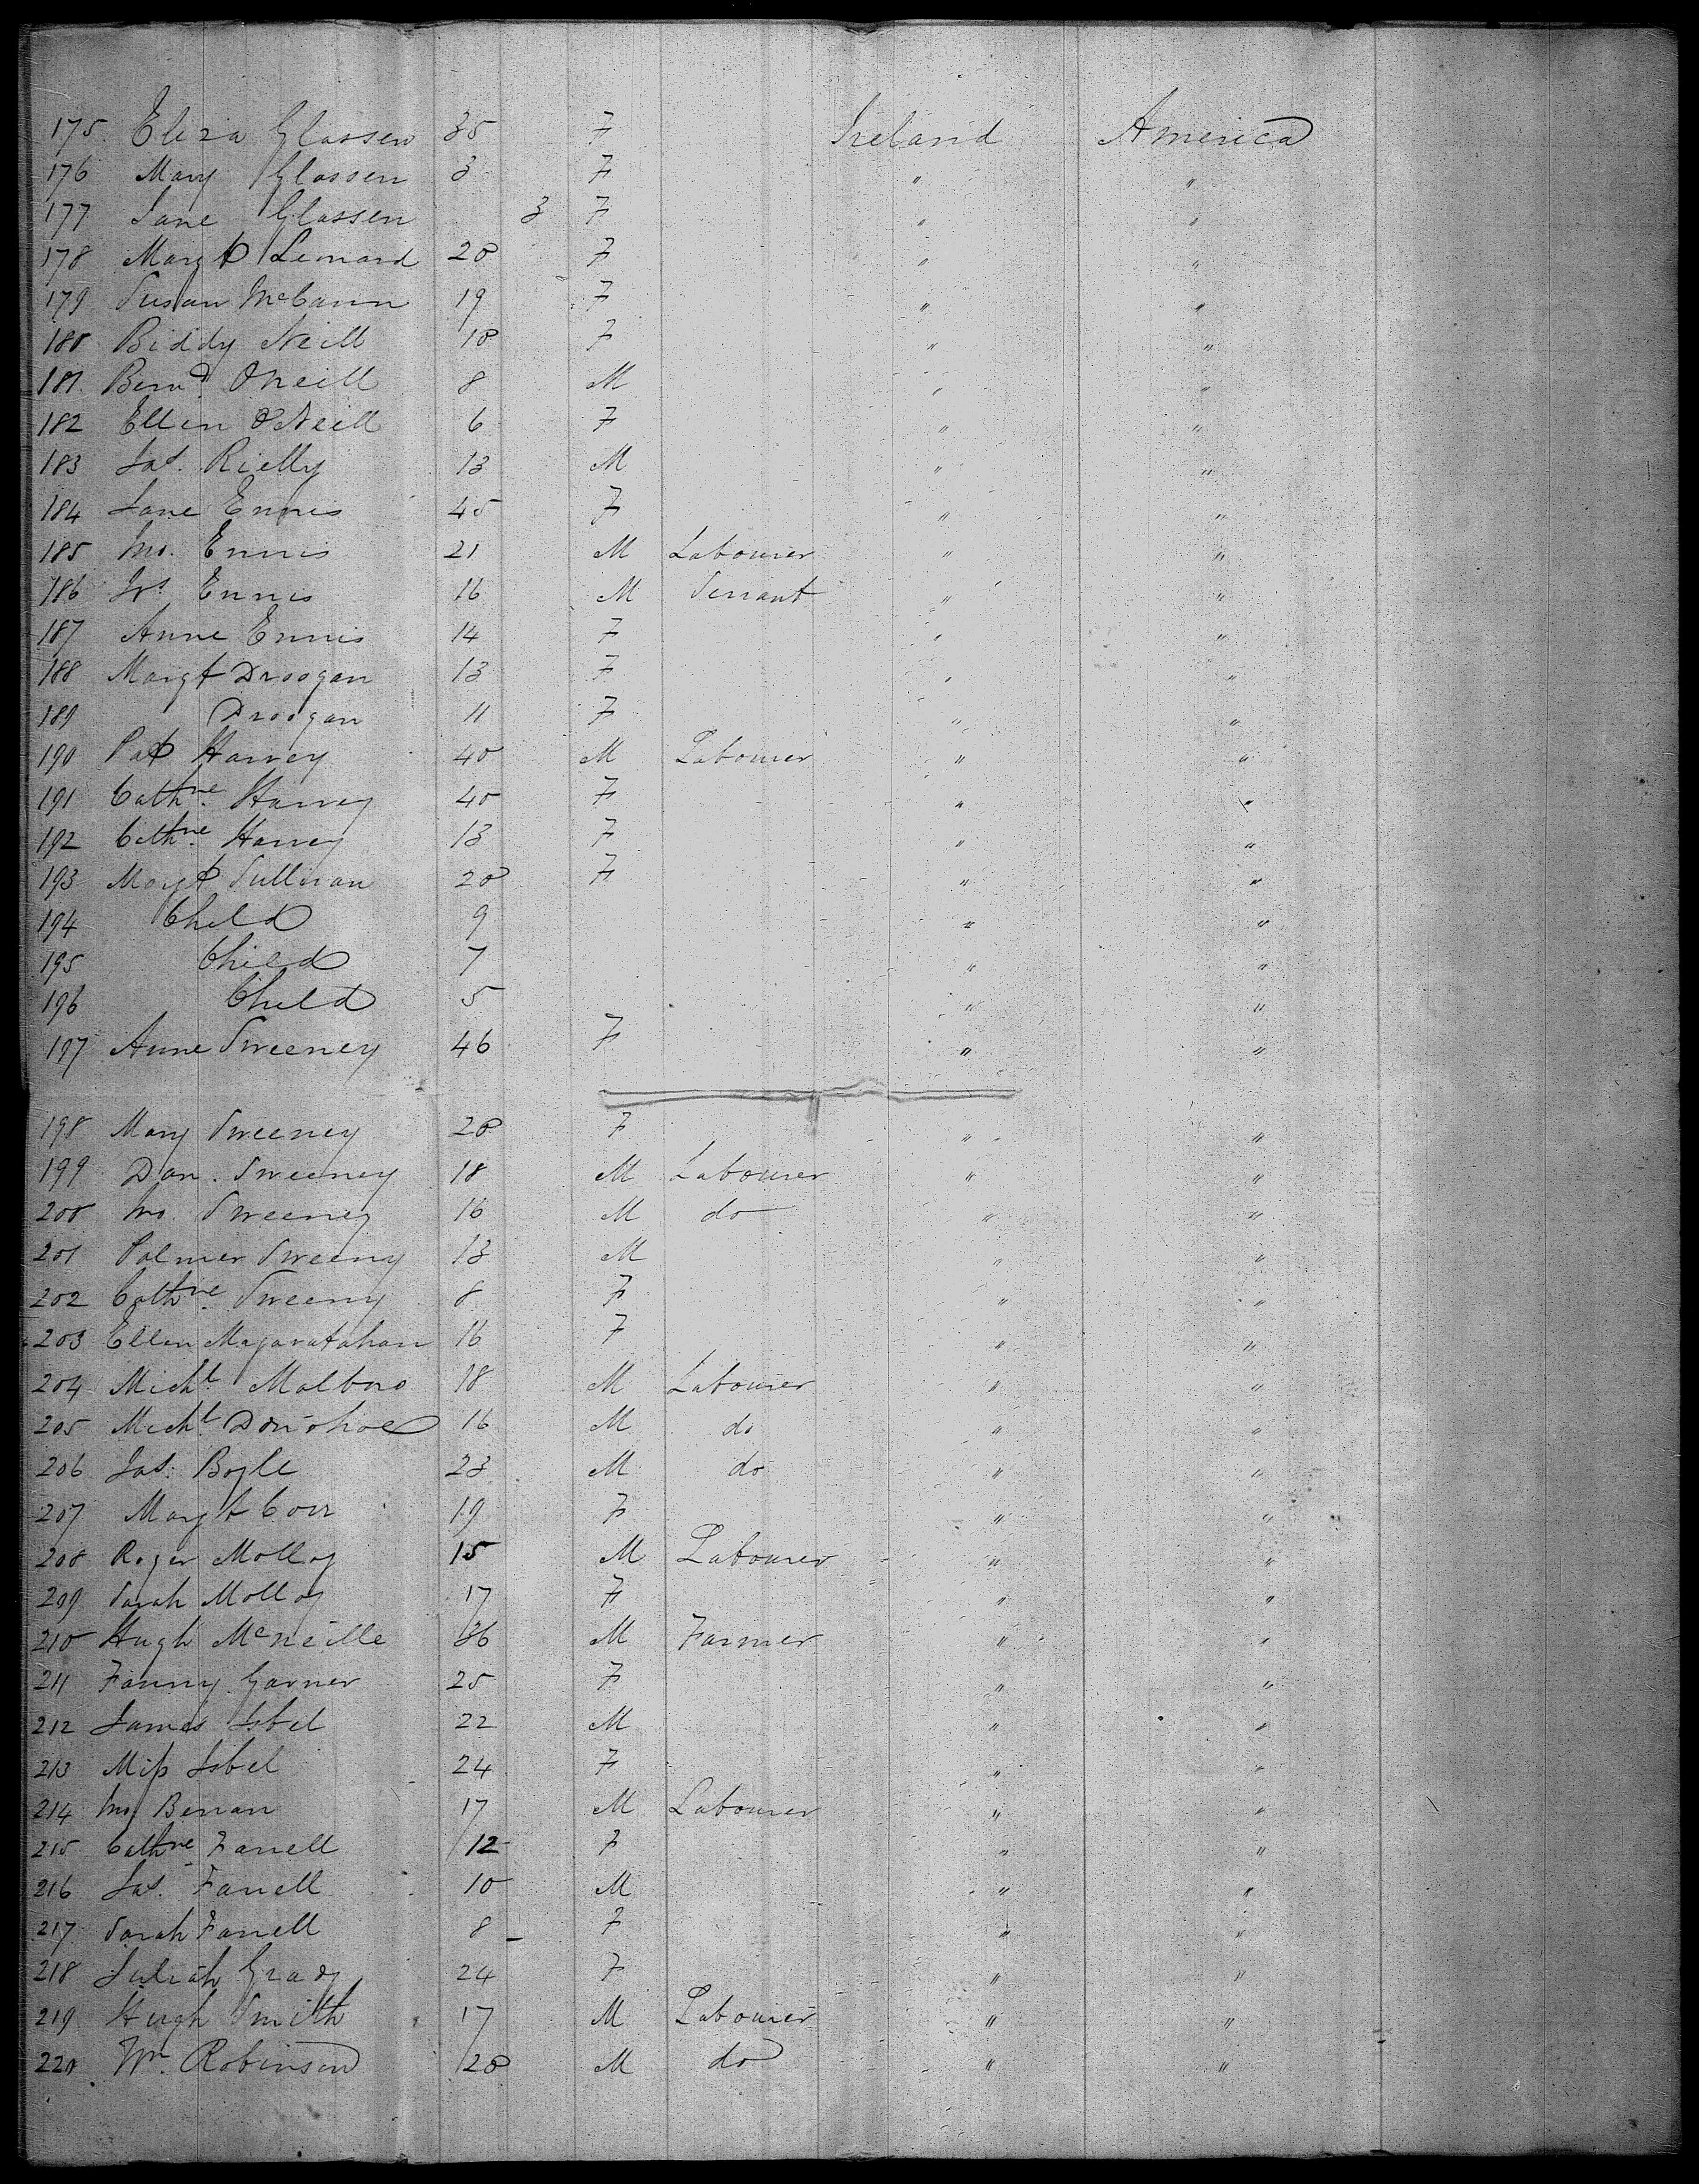 175 Eliza Glassen 35 F Ireland America
176 Mary Glassen 3 F " "
177 Jane Glassen 3 F " "
178 Margt Lenard 20 F " "
179 Susan McCann 19 F " "
180 Biddy Neill 18 F " "
181 Bernd. ONeill 8 M " "
182 Ellen O'Neill 6 F " "
183 Jas. Rielly 13 M " "
184 Jane Ennis 45 F " "
185 Jno. Ennis 21 M Labourer " "
186 Ennis 16 M Servant " "
187 Anne Ennis 14 F " "
188 Margt Droogan 13 F " "
189 Droogan 11 F " "
190 Pat Harvey 40 M Labourer " "
191 Cathne. Harvey 40 F " "
192 Cathne. Harvey 13 F " "
193 Margt Sullivan 20 F " "
194 Child 9 " "
195 Child 7 " "
196 Child 5 " "
197 Anne Sweeney 46 F " "
198 Mary Sweeney 20 F " "
199 Dan. Sweeney 18 M Labourer " "
200 Jno. Sweeney 16 M do " "
201 Palmer Sweeny 13 M " "
202 Cathne. Sweeny 8 F " "
203 Ellen 16 F " "
204 Michl. 18 M Labourer " "
205 Michl. Donohoe 16 M do " "
206 Jas. Boyle 23 M do " "
207 Margt Corr 19 F " "
208 Roger Molloy 15 M Labourer " "
209 Sarah Molloy 17 F " "
210 Hugh McNeille 36 M Farmer " "
211 Fanny Garner 25 F " "
212 James Isbel 22 M " "
213 Miss Isbel 24 F " "
214 Jno. 17 M Labourer " "
215 Cathne Farrell 12 F " "
216 Jas. Farrell 10 M " "
217 Sarah Farrell 8 F " "
218 Juliah Grady 24 F " "
219 Hugh Smith 17 M Labourer " "
220 Wm. Robinson 20 M do " "